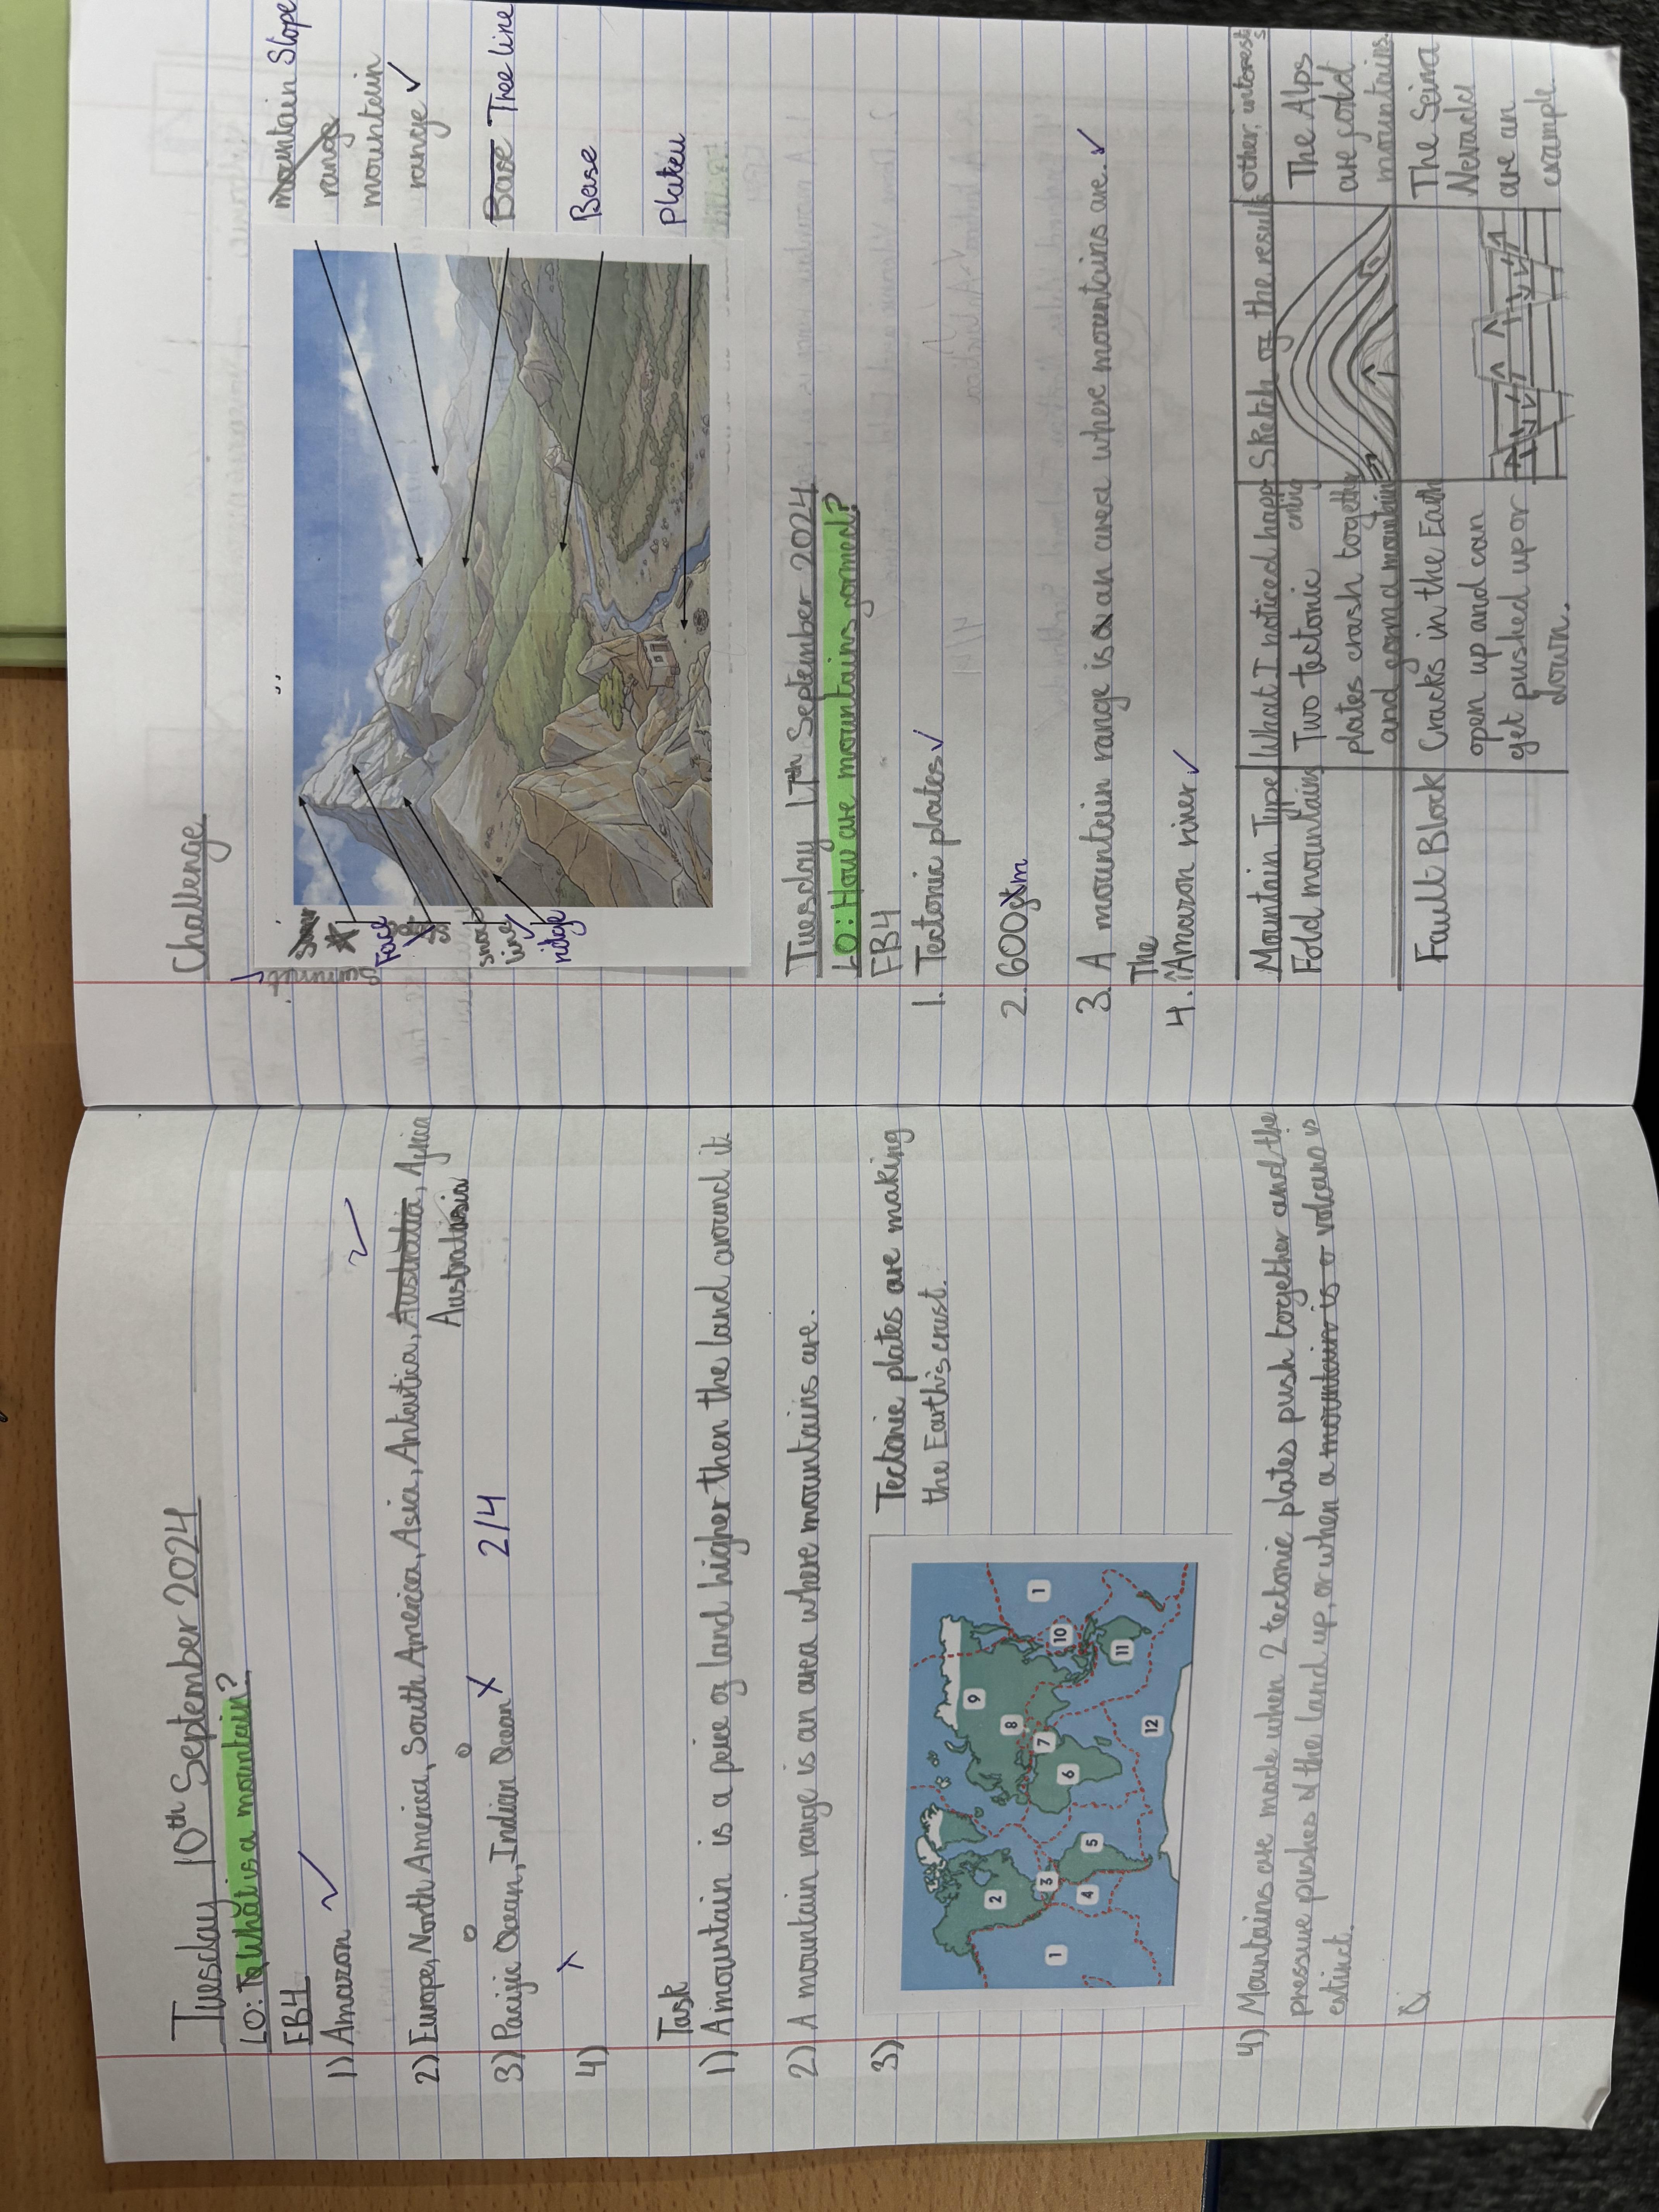 Tuesday 10th September 2024
LO: To What is a mountain?
FB4
1) Amazon
2) Europe, North America, South America, Asia, Antartica, Australia, Africa
Australasia
3) Pacific Ocean, Indian Ocean X 2/4
4)
Task
1) A mountain is a peice of land higher then the land around it
2) A mountain range is an area where mountains are.
3)
Tectonic plates are making
the Earth's crust.
1
2
3
4
5
6
7
8
9
10
11
12
1
4) Mountains are made when 2 tectonic plates push together and the
pressure pushes the land up, or when a mountain is a volcano is
extinct.
Challenge
summit
Face
snow
line
ridge
mountain Slope
range
mountain
range
Base Tree line
Base
Plateu
Tuesday 17th September 2024
LO: How are mountains formed?
FB4
1. Tectonic plates
2. 600 m
3. A mountain range is an area where mountains are.
The
4. Amazon river
Mountain Type
What I noticed happ
ening
Sketch of the results
Other interest
s
Fold mountains
Two tectonic
plates crash together
and form a mountain
The Alps
are fold
mountains.
Fault Block
Cracks in the Earth
open up and can
get pushed up or
down.
The Seirra
Nevada
are an
example.